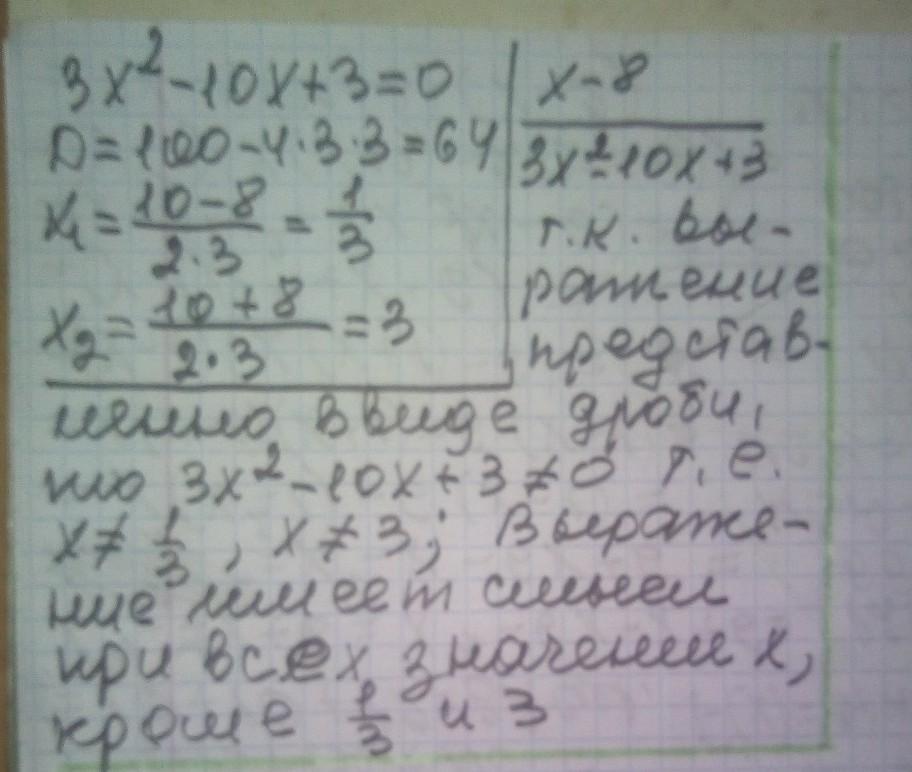 3x²-10x+3=0
D=100-4·3·3=64
x₁=(10-8)/(2·3)=1/3
x₂=(10+8)/(2·3)=3
x-8
3x²-10x+3
т.к. вы-
ражение
представ-
ленно в виде дроби,
то 3x²-10x+3≠0 т.е.
x≠1/3, x≠3; Выраже-
ние имеет смысл
при всех значении x,
кроме 1/3 и 3